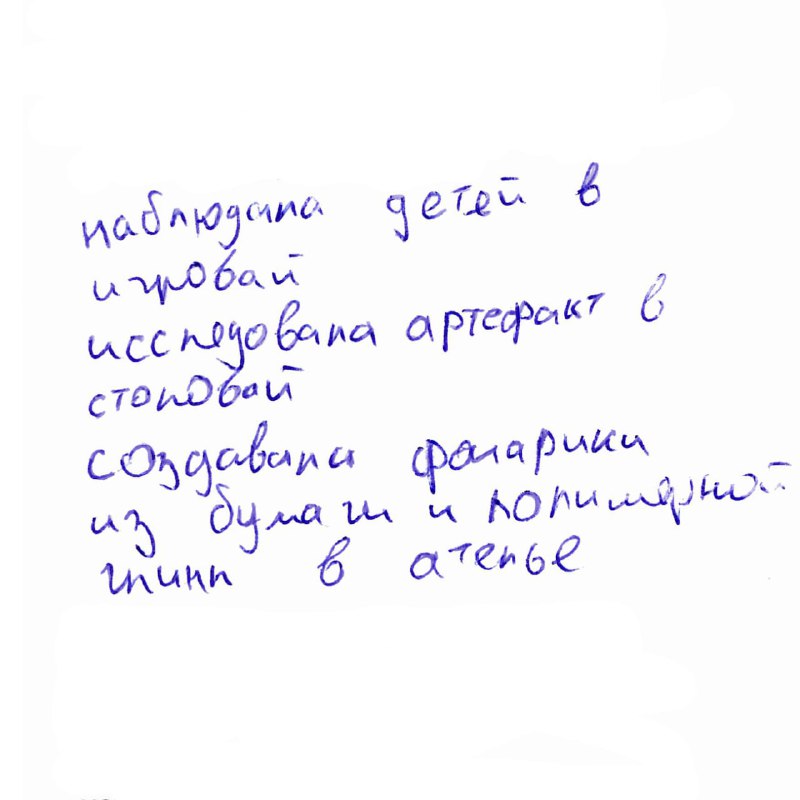 наблюдала детей в
игровай
исследовала артефакт в
столовай
создавала фонарики
из бумаги и полимерной
глины в ателье